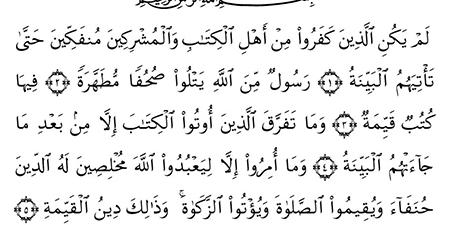 لَمْ يَكُنِ الَّذِينَ كَفَرُوا مِنْ أَهْلِ الْكِتَابِ وَالْمُشْرِكِينَ مُنفَكِّينَ حَتَّىٰ
تَأْتِيَهُمُ الْبَيِّنَةُ ﴿١﴾ رَسُولٌ مِّنَ اللَّهِ يَتْلُوا صُحُفًا مُّطَهَّرَةً ﴿٢﴾ فِيهَا
كُتُبٌ قَيِّمَةٌ ﴿٣﴾ وَمَا تَفَرَّقَ الَّذِينَ أُوتُوا الْكِتَابَ إِلَّا مِنۢ بَعْدِ مَا
جَاءَتْهُمُ الْبَيِّنَةُ ﴿٤﴾ وَمَا أُمِرُوا إِلَّا لِيَعْبُدُوا اللَّهَ مُخْلِصِينَ لَهُ الدِّينَ
حُنَفَاءَ وَيُقِيمُوا الصَّلَوٰةَ وَيُؤْتُوا الزَّكَوٰةَ ۚ وَذَٰلِكَ دِينُ الْقَيِّمَةِ ﴿٥﴾